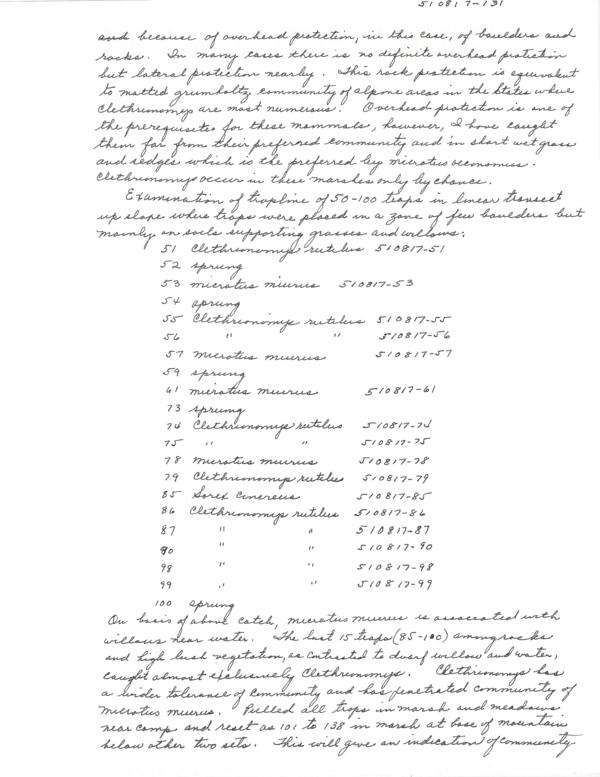 510817-131
and because of overhead protection, in this case, of boulders and
rocks. In many cases there is no definite overhead protection
but lateral protection nearby. This rock protection is equivalent
to matted grumholtz community of alpone areas in the States where
Clethrionomys are most numerous. Overhead protection is one of
the prerequisites for these mammals, however, I have caught
them far from their preferred community and in short wet grass
and sedges which is the preferred by microtus oeconomus.
Clethrionomys occur in these marshes only by chance.
Examination of trapline of 50-100 traps in linear transect
up slope where traps were placed in a zone of few boulders but
mainly on soils supporting grasses and willows:
51 Clethrionomys rutilus 510817-51
52 sprung
53 microtus miurus 510817-53
54 sprung
55 Clethrionomys rutilus 510817-55
56 " " 510817-56
57 Microtus miurus 510817-57
59 sprung
61 microtus miurus 510817-61
73 sprung
74 Clethrionomys rutilus 510817-74
75 " " 510817-75
78 Microtus miurus 510817-78
79 Clethrionomys rutilus 510817-79
85 Sorex Cinereus 510817-85
86 Clethrionomys rutilus 510817-86
87 " " 510817-87
90 " " 510817-90
98 " " 510817-98
99 " " 510817-99
100 sprung
On basis of above catch, microtus miurus is associated with
willows near water. The last 15 traps (85-100) among rocks
and high lush vegetation, as contrasted to dwarf willow and water,
caught almost exclusively Clethrionomys. Clethrionomys has
a wider tolerance of community and has penetrated community of
microtus miurus. Pulled all traps in marsh and meadows
near camp and reset as 101 to 138 in marsh at base of mountain
below other two sets. This will give an indication of community